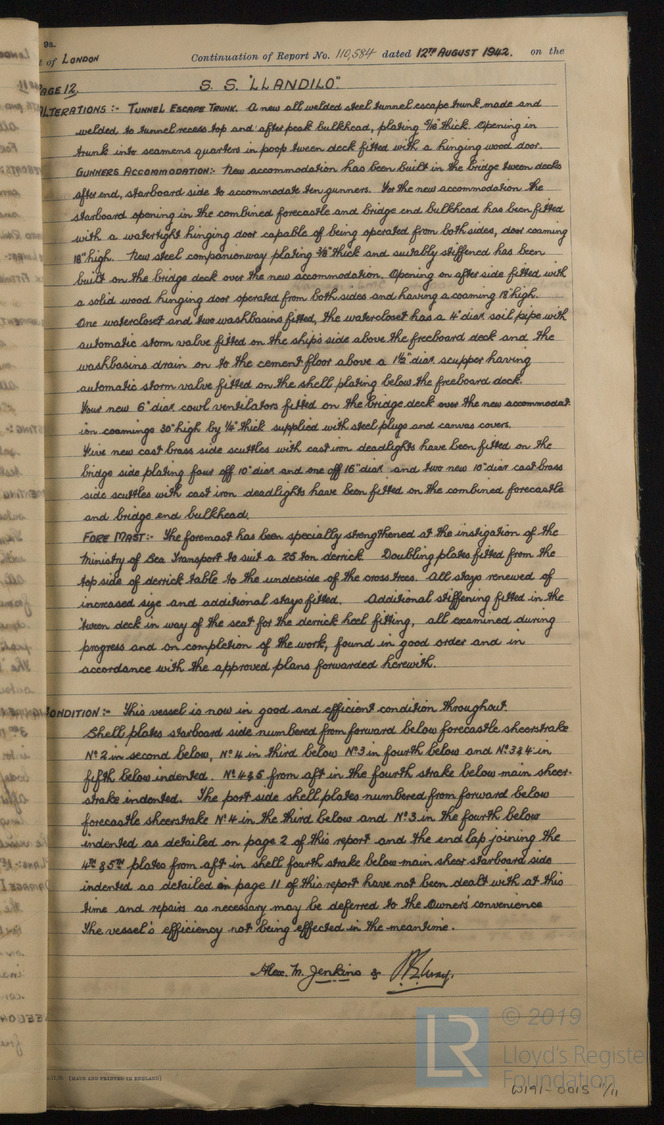 9a.
t of LONDON Continuation of Report No. 110,584 dated 12TH AUGUST 1942. on the
PAGE 12. S. S. "LLANDILO".
ALTERATIONS :- TUNNEL ESCAPE TRUNK. A new all welded steel tunnel escape trunk made and
welded to tunnel recess top and after peak bulkhead, plating 5/16" thick. Opening in
trunk into seamens quarters in poop tween deck fitted with a hinging wood door.
GUNNERS ACCOMMODATION:- New accommodation has been built in the bridge tween decks
after end, starboard side to accommodate ten gunners. For the new accommodation the
starboard opening in the combined forecastle and bridge end bulkhead has been fitted
with a watertight hinging door capable of being operated from both sides, door coaming
18" high. New steel companionway plating 3/8" thick and suitably stiffened has been
built on the bridge deck over the new accommodation. Opening on after side fitted with
a solid wood hinging door operated from both sides and having a coaming 18" high.
One watercloset and two washbasins fitted, the watercloset has a 4" diar soil pipe with
automatic storm valve fitted on the ship's side above the freeboard deck and the
washbasins drain on to the cement floor above a 1½" diar scupper having
automatic storm valve fitted on the shell plating below the freeboard deck.
Four new 6" diar cowl ventilators fitted on the bridge deck over the new accommodat
ion coamings 30" high by ¼" thick supplied with steel plugs and canvas covers.
Five new cast brass side scuttles with cast iron deadlights have been fitted on the
bridge side plating four off 10" diar and one off 16" diar and two new 10" diar cast brass
side scuttles with cast iron deadlights have been fitted on the combined forecastle
and bridge end bulkhead.
FORE MAST:- The foremast has been specially strengthened at the instigation of the
Ministry of Sea Transport to suit a 25 ton derrick Doubling plates fitted from the
top side of derrick table to the underside of the cross trees. All stays renewed of
increased size and additional stays fitted. Additional stiffening fitted in the
'tween deck in way of the seat for the derrick heel fitting, all examined during
progress and on completion of the work, found in good order and in
accordance with the approved plans forwarded herewith.
CONDITION :- This vessel is now in good and efficient condition throughout.
Shell plates starboard side numbered from forward below forecastle sheerstrake
No. 2 in second below, No. 4 in third below No. 3 in fourth below and No. 3 & 4 in
fifth below indented. No. 4 & 5 from aft in the fourth strake below main sheer-
strake indented. The port side shell plates numbered from forward below
forecastle sheerstrake No. 4 in the third below and No. 3 in the fourth below
indented as detailed on page 2 of this report and the end lap joining the
4TH & 5TH plates from aft in shell fourth strake below main sheer starboard side
indented as detailed on page 11 of this report have not been dealt with at this
time and repairs as necessary may be deferred to the Owners' convenience
The vessel's efficiency not being effected in the meantime.
Alex. M. Jenkins &
LR © 2019
Lloyd's Register
Foundation
(MADE AND PRINTED IN ENGLAND)
W191-0015 11/11